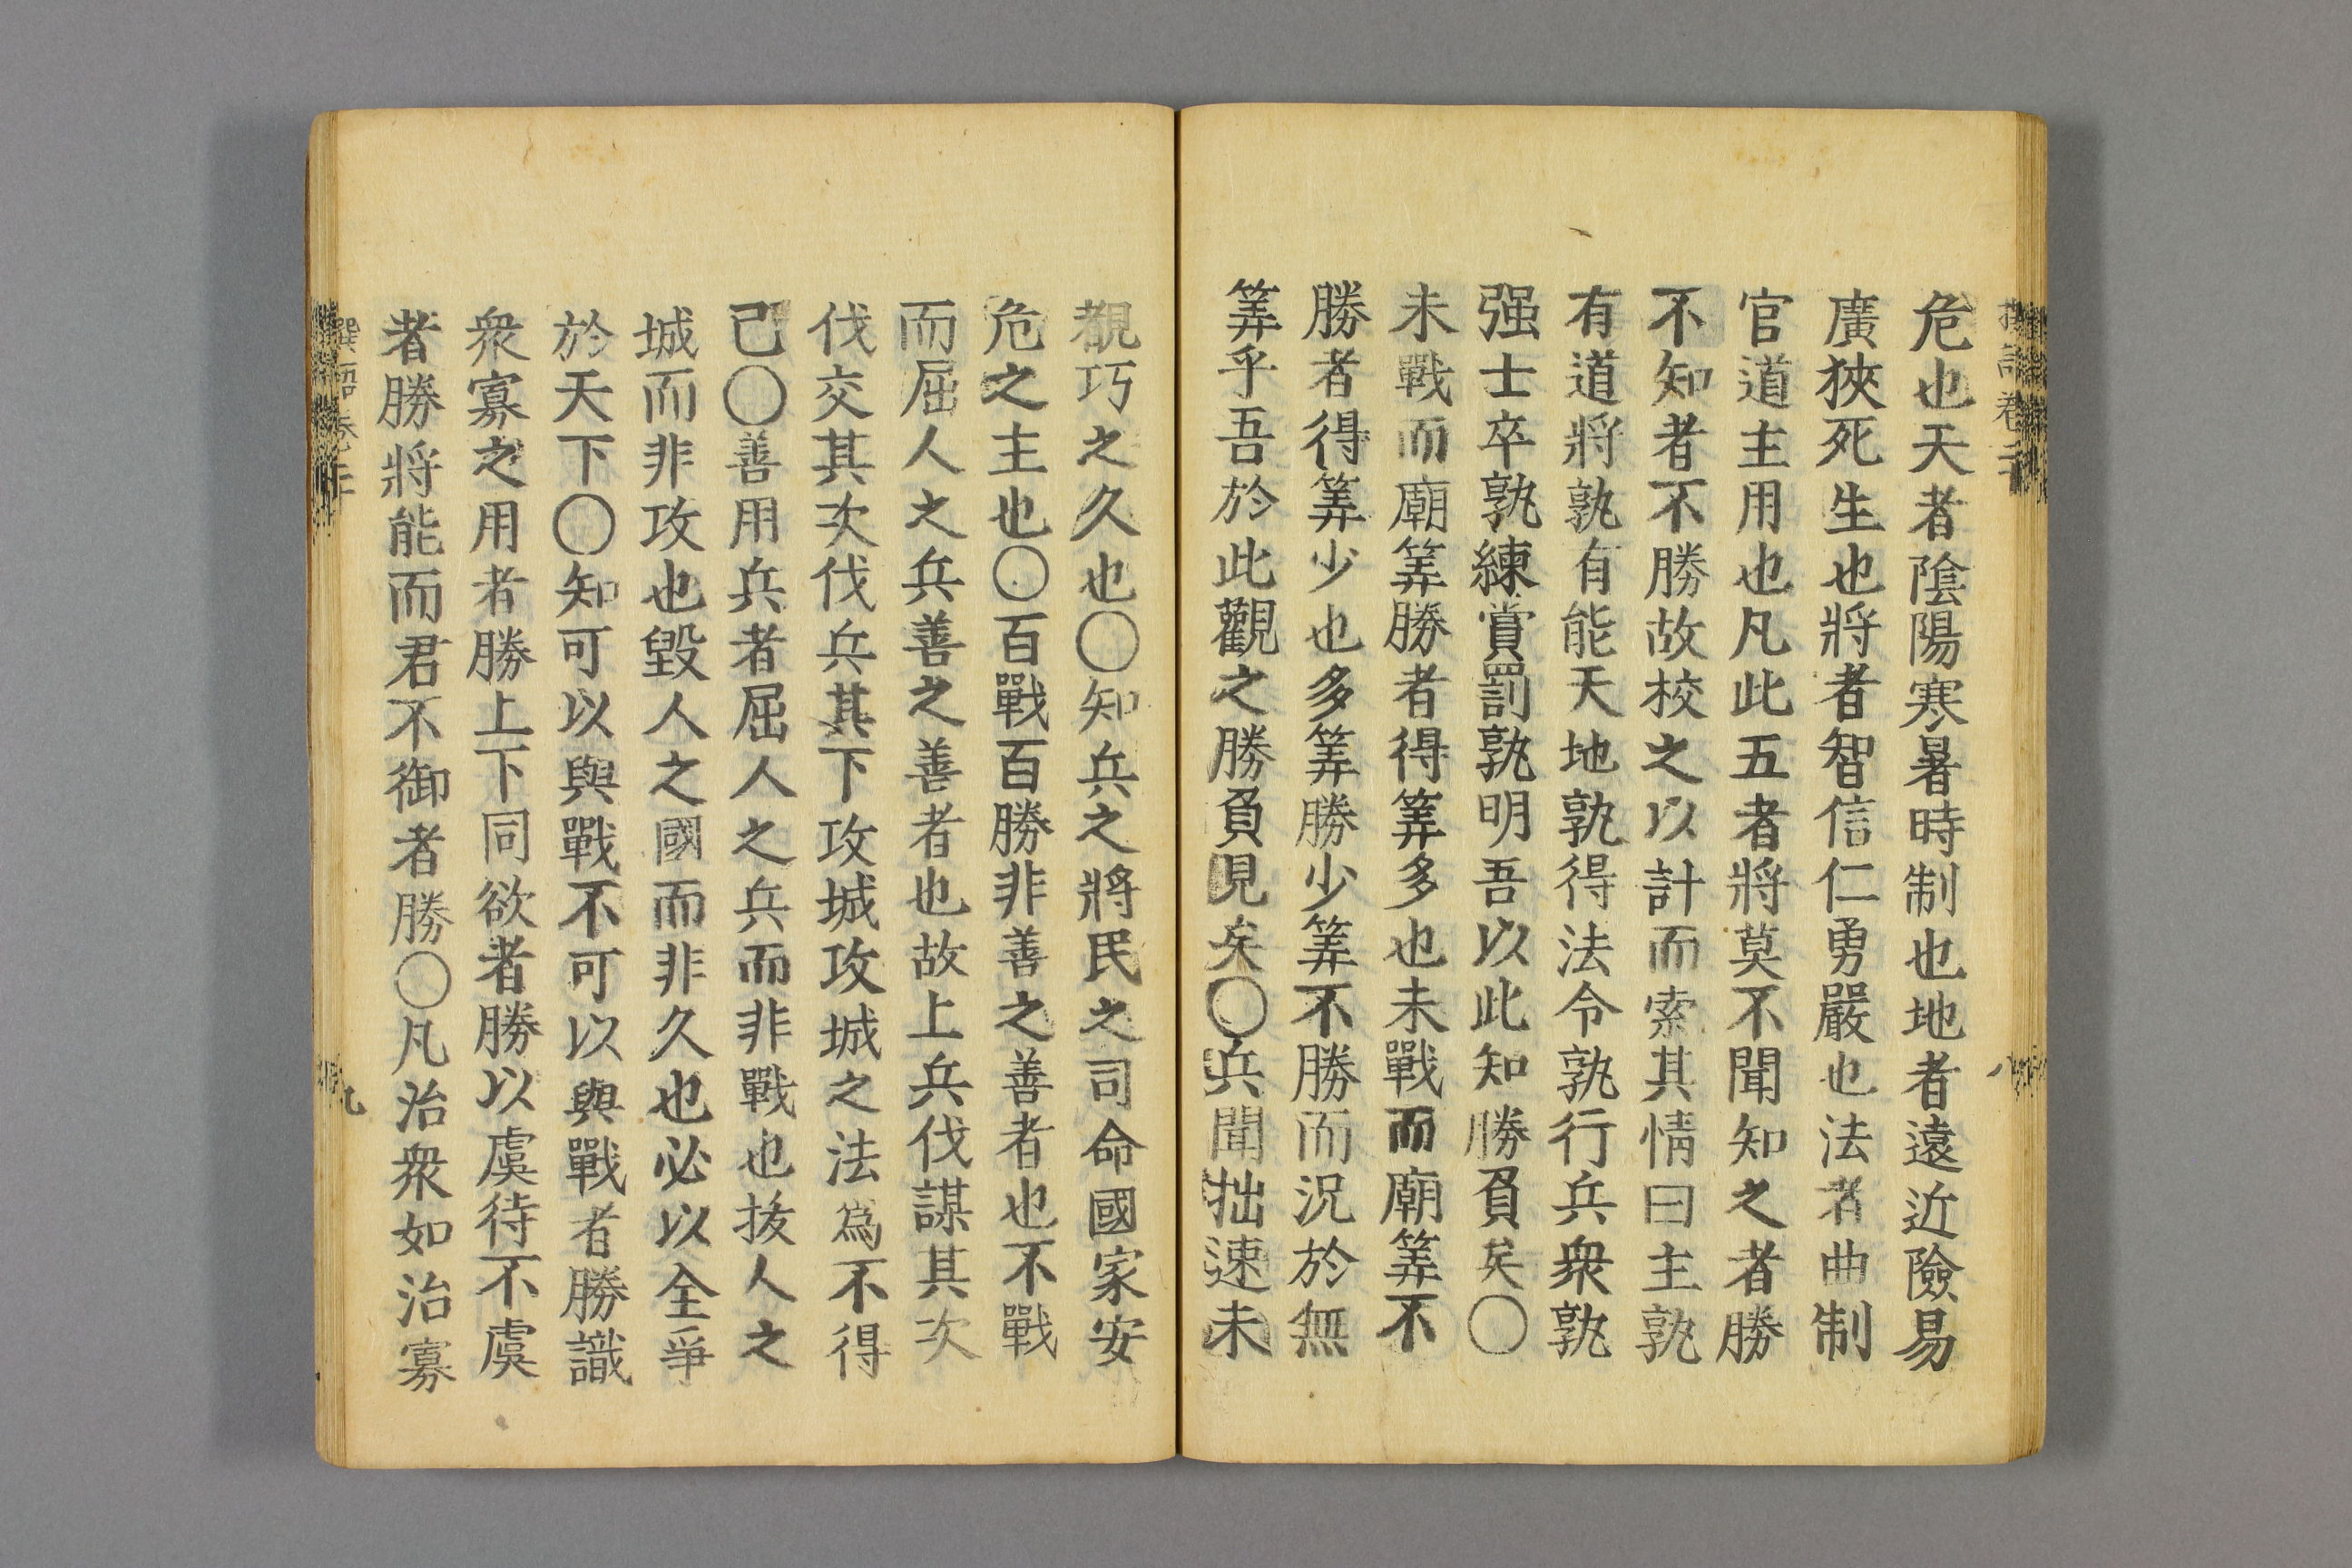 危也天者陰陽寒暑時制也地者遠近險易
廣狹死生也將者智信仁勇嚴也法者曲制
官道主用也凡此五者將莫不聞知之者勝
不知者不勝故校之以計而索其情曰主孰
有道將孰有能天地孰得法令孰行兵衆孰
强士卒孰練賞罰孰明吾以此知勝負矣〇
未戰而廟筭勝者得筭多也未戰而廟筭不
勝者得筭少也多筭勝少筭不勝而況於無
筭乎吾於此觀之勝負見矣〇兵聞拙速未
覩巧之久也〇知兵之將民之司命國家安
危之主也〇百戰百勝非善之善者也不戰
而屈人之兵善之善者也故上兵伐謀其次
伐交其次伐兵其下攻城攻城之法爲不得
已〇善用兵者屈人之兵而非戰也拔人之
城而非攻也毀人之國而非久也必以全爭
於天下〇知可以與戰不可以與戰者勝識
衆寡之用者勝上下同欲者勝以虞待不虞
者勝將能而君不御者勝〇凡治衆如治寡
九